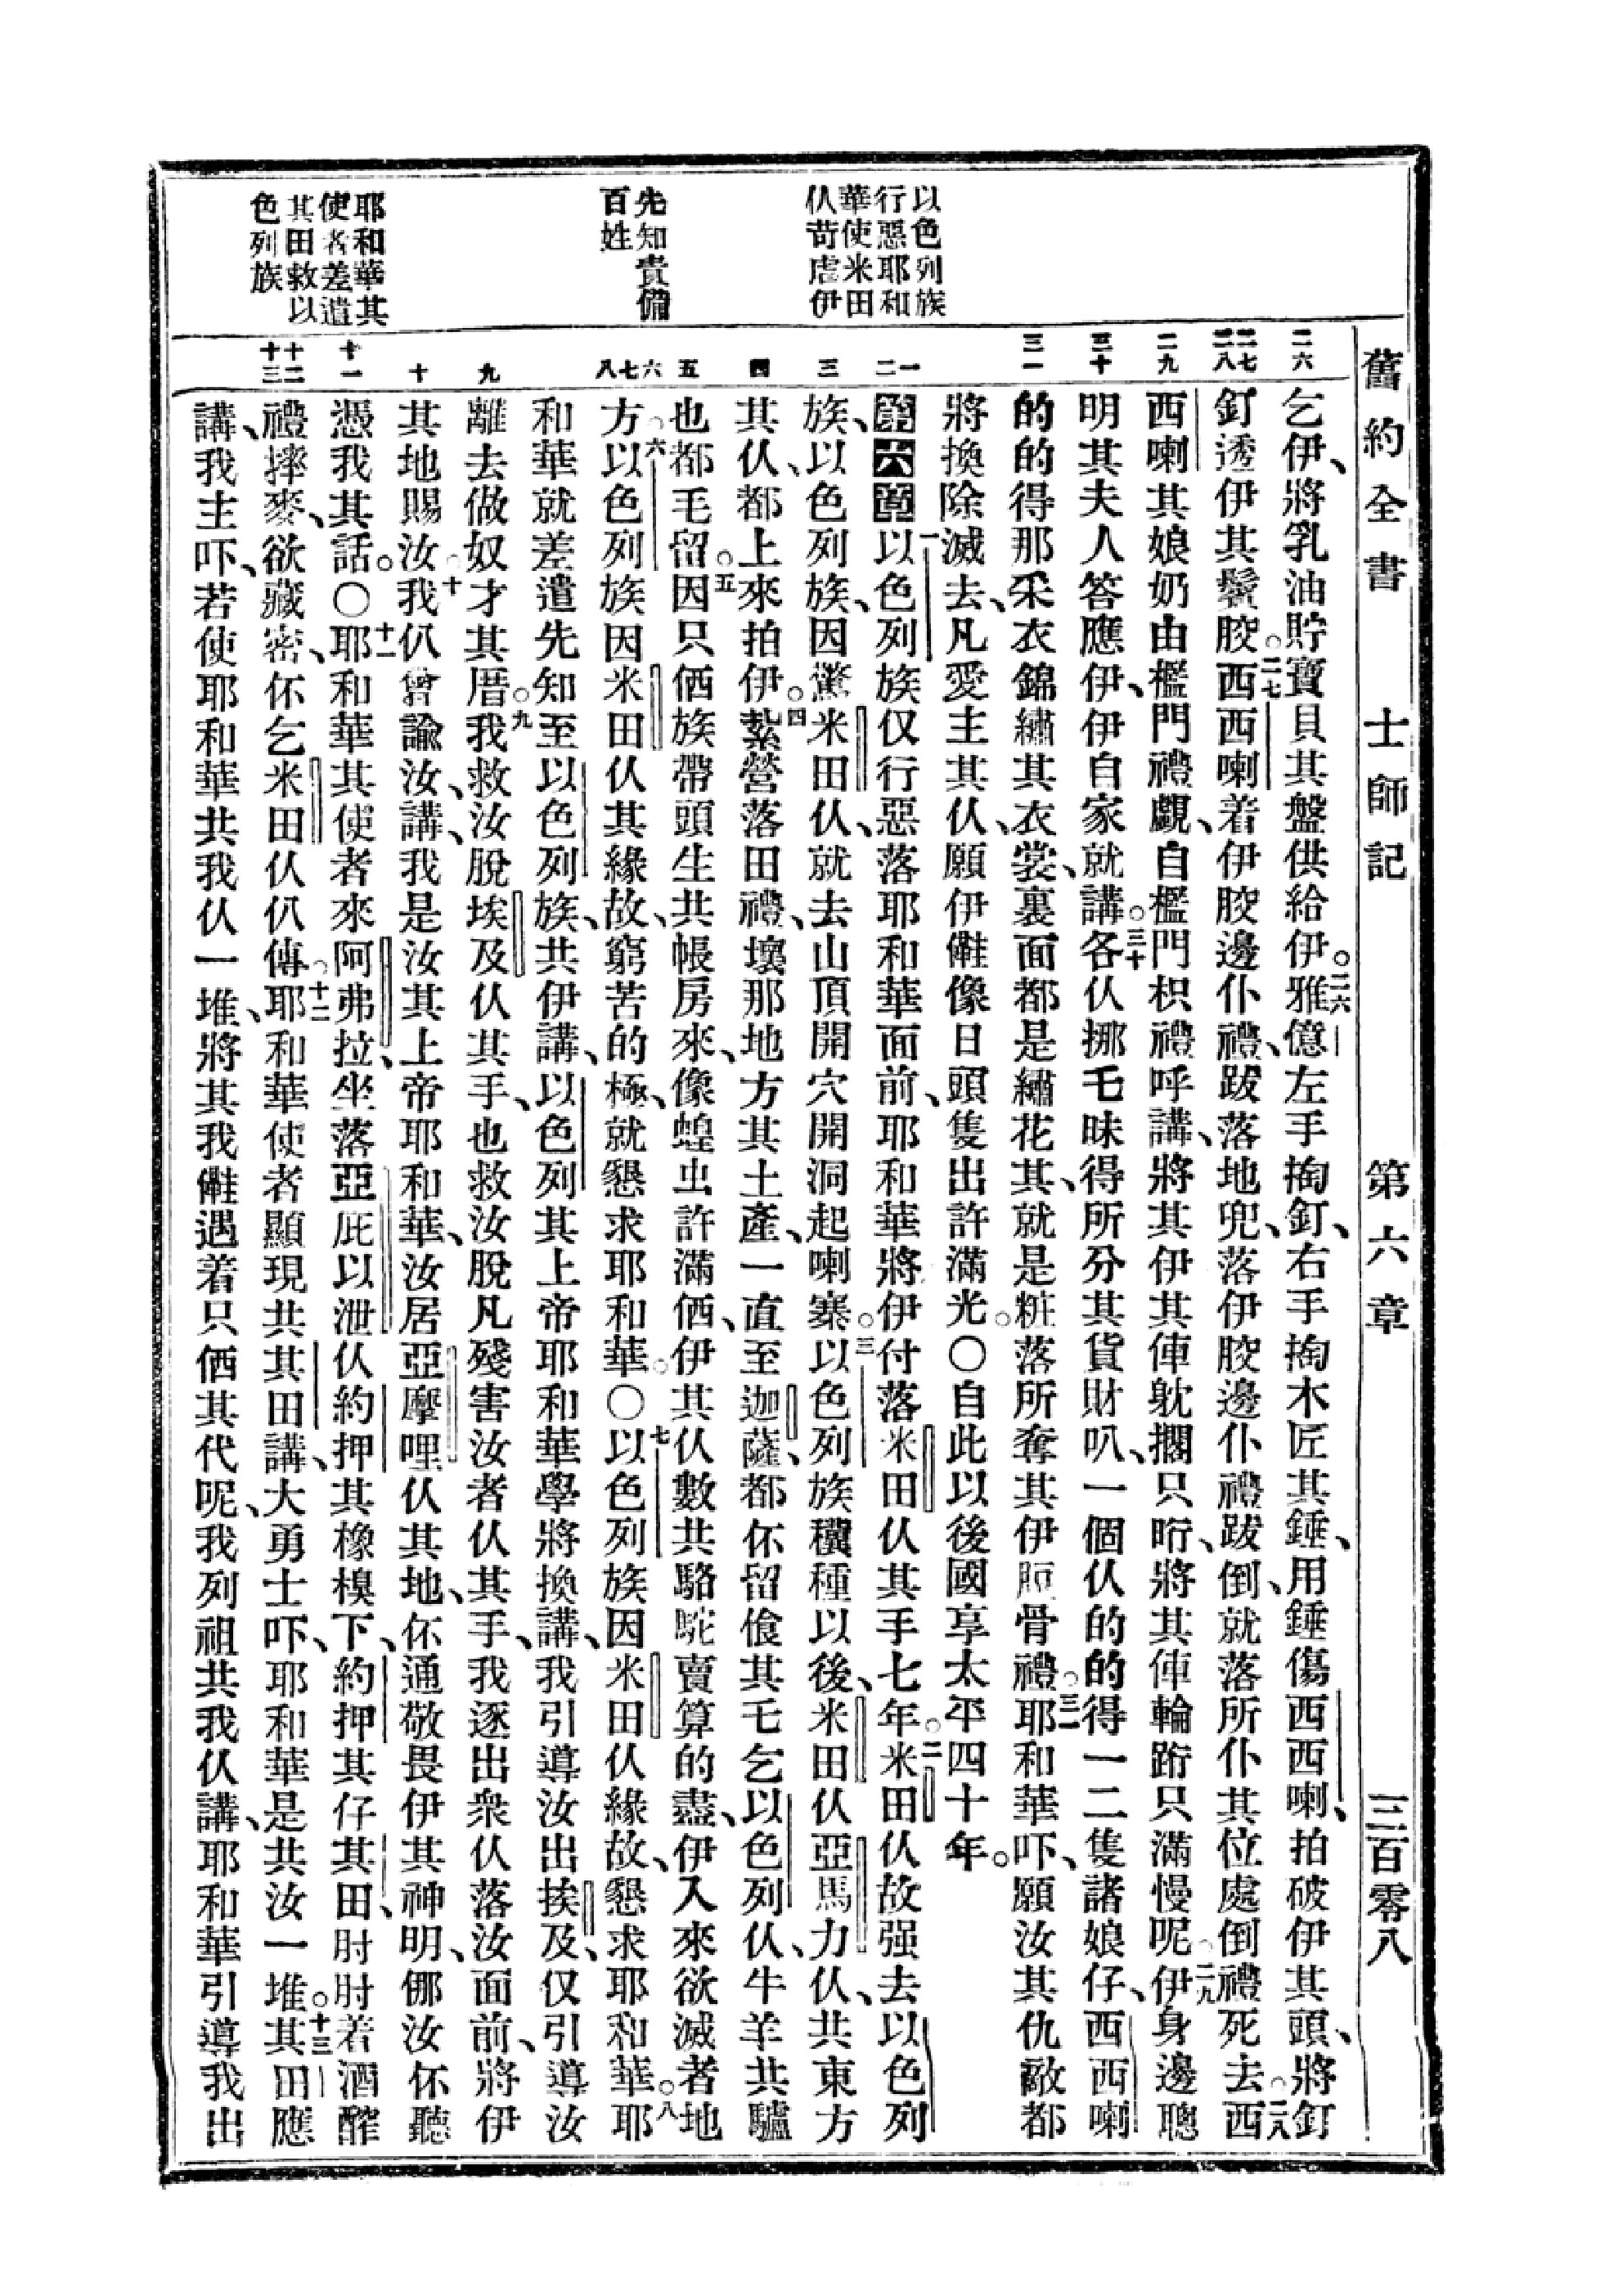 舊約全書　士師記　第六章　三百零八
以色列族
行惡耶和
華使米田
仫苛虐伊
先知責備
百姓
耶和華其
使者差遣
其田救以
色列族
二六
二七
二八
二九
三十
三一
一
二
三
四
五
六
七
八
九
十
十一
十二
十三
乞伊、將乳油貯寶貝其盤供給伊。二六雅億左手掏釘、右手掏木匠其錘、用錘傷西西喇、拍破伊其頭、將釘
釘透伊其鬢胶。二七西西喇着伊胶邊仆禮、跋落地兜、落伊胶邊仆禮、跋倒、就落所仆其位處倒禮死去。二八西
西喇其娘奶由檻門禮覷、自檻門枳禮呼講、將其伊其俥躭擱只晍、將其俥輪跻只滿慢呢。二九伊身邊聰
明其夫人答應伊、伊自家就講。三十各仫挪乇昧得所分其貨財叭、一個仫的的得一二隻諸娘仔、西西喇
的的得那采衣錦繡其衣裳、裏面都是繡花其、就是粧落所奪其伊脰骨禮。三一耶和華吓、願汝其仇敵都
將換除滅去、凡愛主其仫、願伊儺像日頭隻出許滿光。〇自此以後國享太平四十年。
第六章　一以色列族仅行惡落耶和華面前、耶和華將伊付落米田仫其手七年。二米田仫故强去以色列
族、以色列族、因驚米田仫、就去山頂開穴開洞起喇寨。三以色列族穬種以後、米田仫亞馬力仫、共東方
其仫、都上來拍伊。四紮營落田禮、壞那地方其土產、一直至迦薩、都伓留飧其乇乞以色列仫、牛羊共驢
也都毛留。五因只伵族帶頭生共帳房來、像蝗虫許滿伵、伊其仫數共駱駝賣算的盡、伊入來欲滅者地
方。六以色列族因米田仫其緣故、窮苦的極、就懇求耶和華。〇七以色列族因米田仫緣故、懇求耶和華。八耶
和華就差遣先知至以色列族、共伊講、以色列其上帝耶和華學將換講、我引導汝出挨及、仅引導汝
離去做奴才其厝。九我救汝脫埃及仫其手、也救汝脫凡殘害汝者仫其手、我逐出衆仫落汝面前、將伊
其地賜汝。十我仈曾諭汝、講、我是汝其上帝耶和華、汝居亞摩哩仫其地、伓通敬畏伊其神明、㑚汝伓聽
憑我其話。〇十一耶和華其使者來阿弗拉、坐落亞庇以泄仫約押其橡模下、約押其仔其田肘肘着酒醡
禮摔麥、欲藏密、伓乞米田仫仈傳。十二耶和華使者顯現共其田講、大勇士吓、耶和華是共汝一堆。十三其田應
講、我主吓、若使耶和華共我仫一堆、將其我儺遇着只伵其代呢、我列祖共我仫講、耶和華引導我出